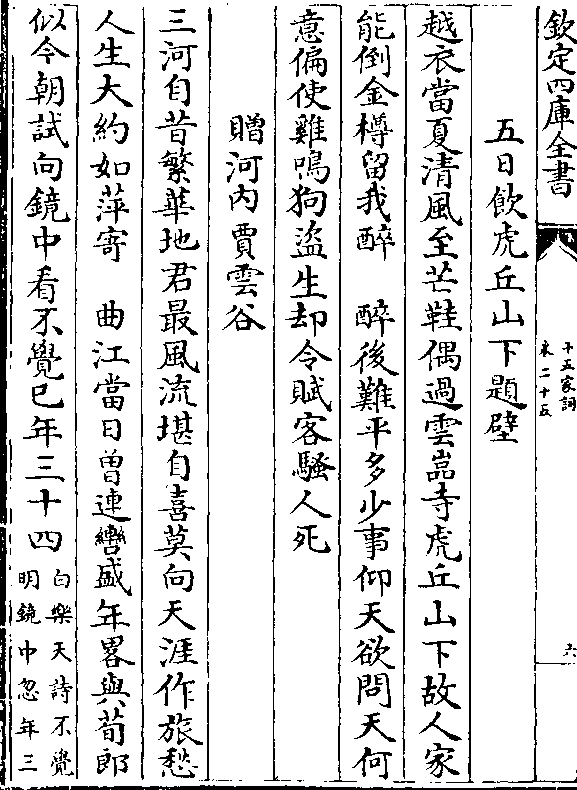 欽定四庫全書
十五家詞
卷二十五
六
五日飲虎丘山下題壁
越衣當夏清風至芒鞋偶過雲嵓寺虎丘山下故人家
能倒金樽留我醉　醉後難平多少事仰天欲問天何
意偏使雞鳴狗盜生却令賦客騷人死
贈河内賈雲谷
三河自昔繁華地君最風流堪自喜莫向天涯作旅愁
人生大約如萍寄　曲江當日曾連轡盛年畧與荀郎
似今朝試向鏡中看不覺已年三十四
白樂天詩不覺
明鏡中忽年三